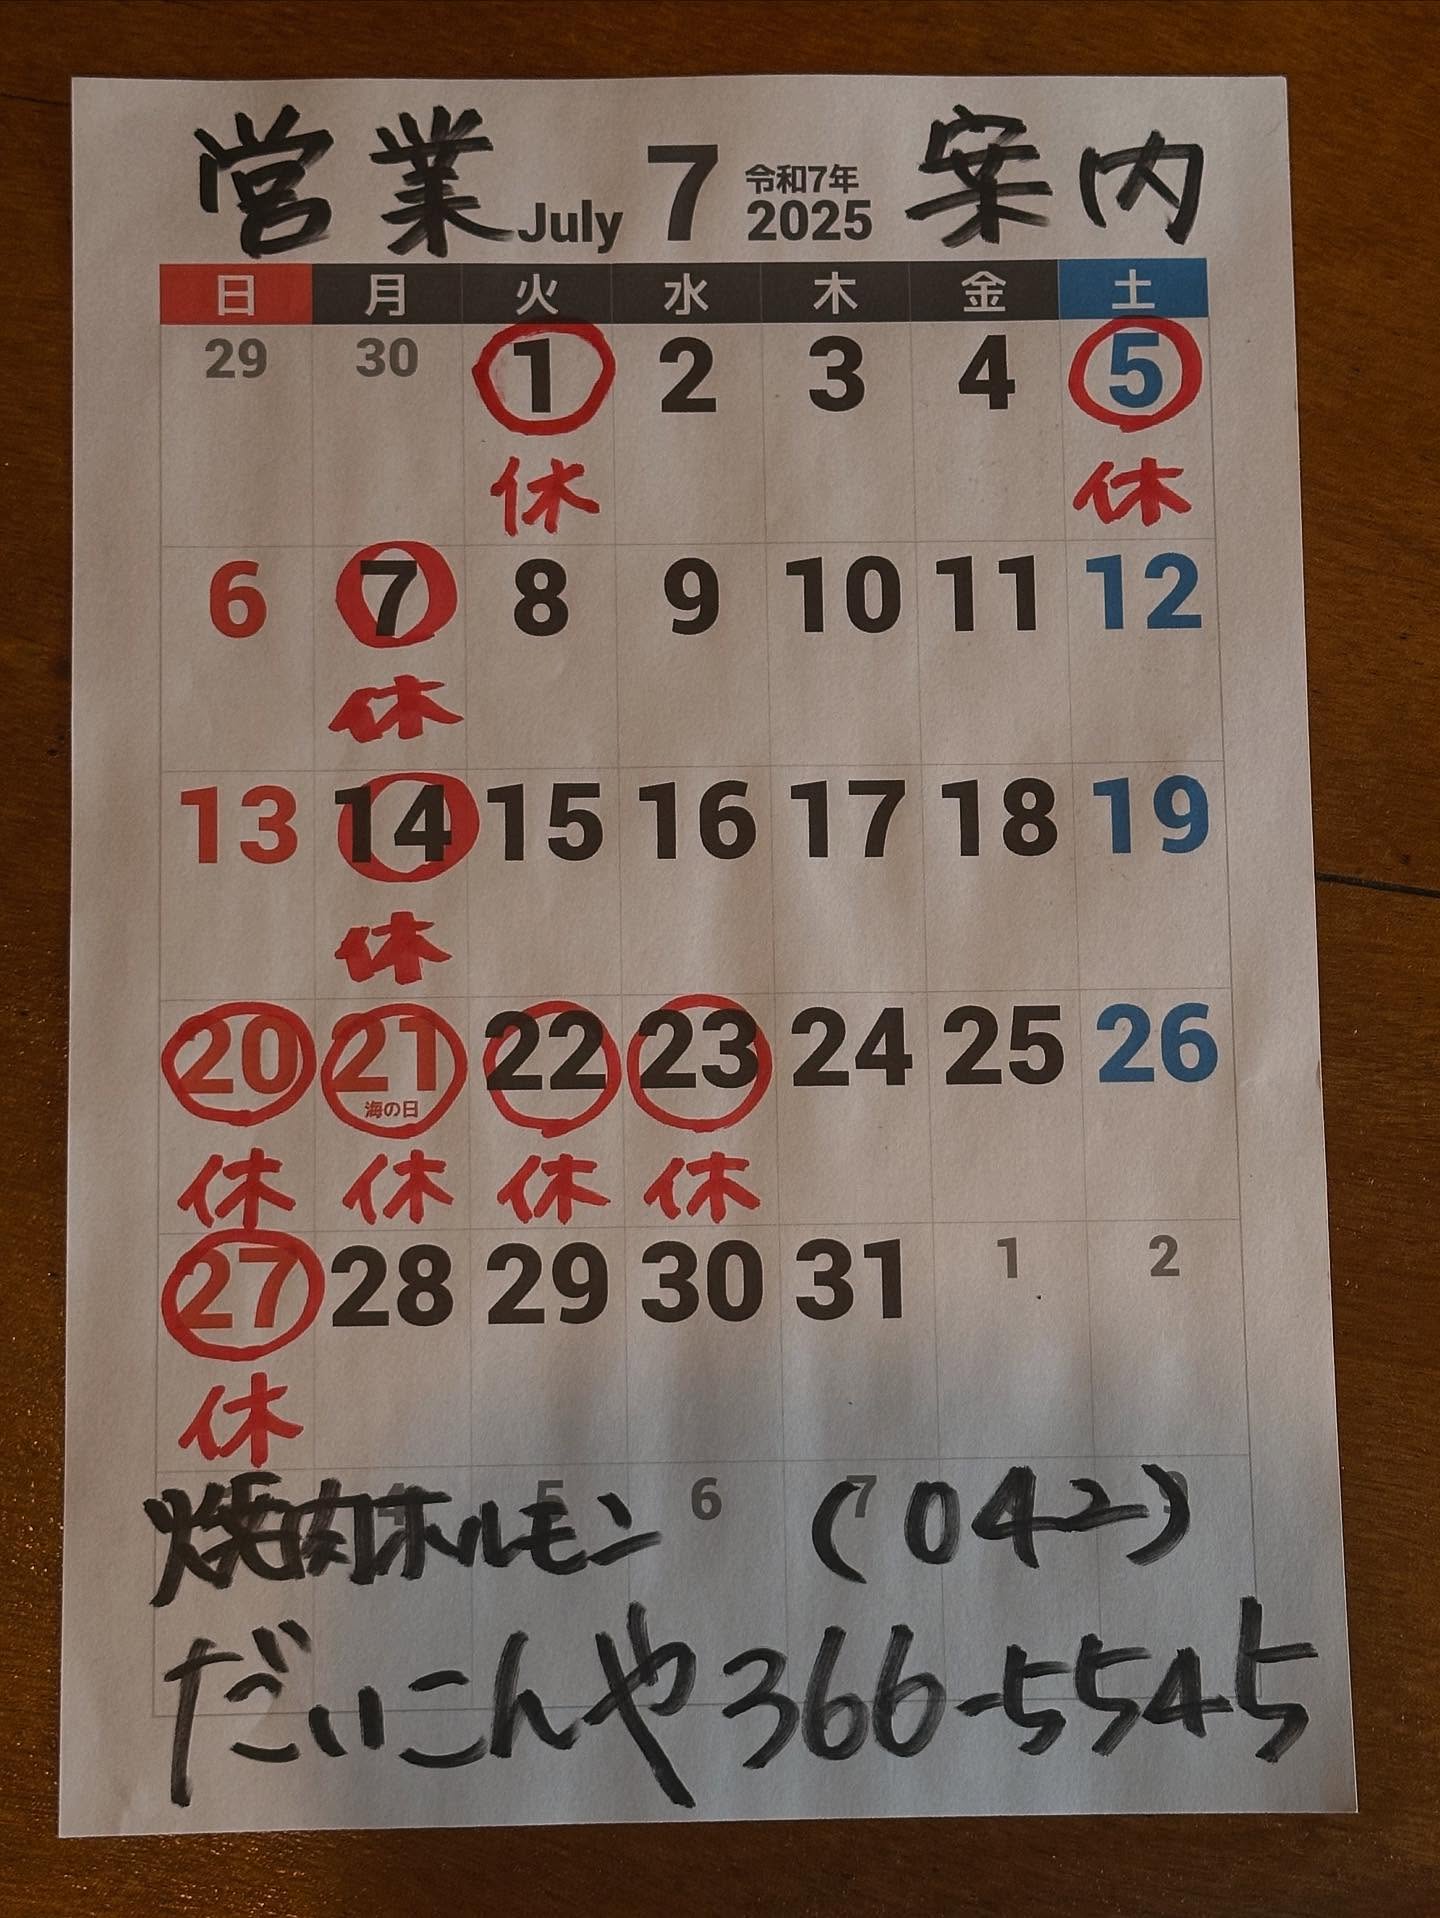 営業 July 7 令和7年 2025 案内
日 月 火 水 木 金 土
29 30 1 2 3 4 5
休 休
6 7 8 9 10 11 12
休
13 14 15 16 17 18 19
休
20 21 22 23 24 25 26
海の日
休 休 休 休
27 28 29 30 31 1 2
休
4 5 6 7
焼肉ホルモン (042)
だいこんや 366-5545